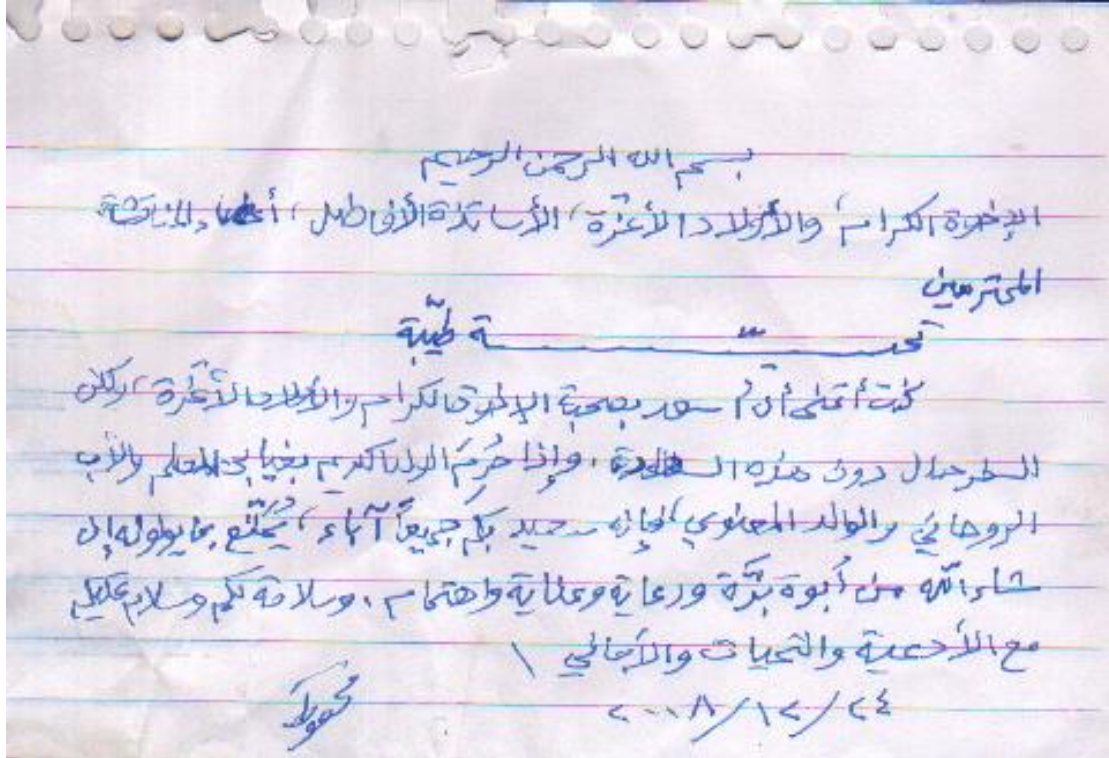 بسم الله الرحمن الرحيم
الإخوة الكرام، والأولاد الأعزّة، الأساتذة الأفاضل، أعضاء المناقشة
المحترمين
تحيّـــــــــــــة طيّبة
كنت أتمنى أن أسعد بصحبة الإخوة الكرام والأولاد الأعزّة، ولكن
حال دون هذه السعادة، وإذا حُرِمَ الولد الكريم بغياب المعلم والأب
الروحاني والوالد المعنوي، فإنه بكم جميعاً آباء، يُمتّع بما يولونه إن
شاء الله من أبوة برّة ورعاية وعناية واهتمام، وسلامة لكم وسلام عليكم
مع الأدعية والتحيات والأماني \
٢٤/١٢/٢٠٠٨ محفوظ